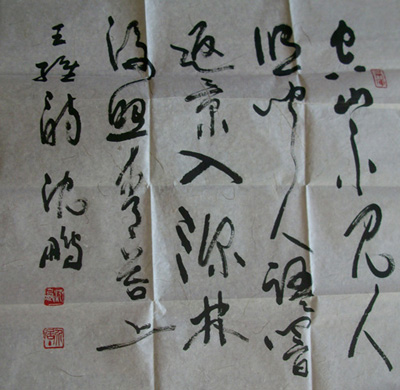 空山不见人
但闻人语响
返景入深林
复照青苔上
王维诗 沈鹏